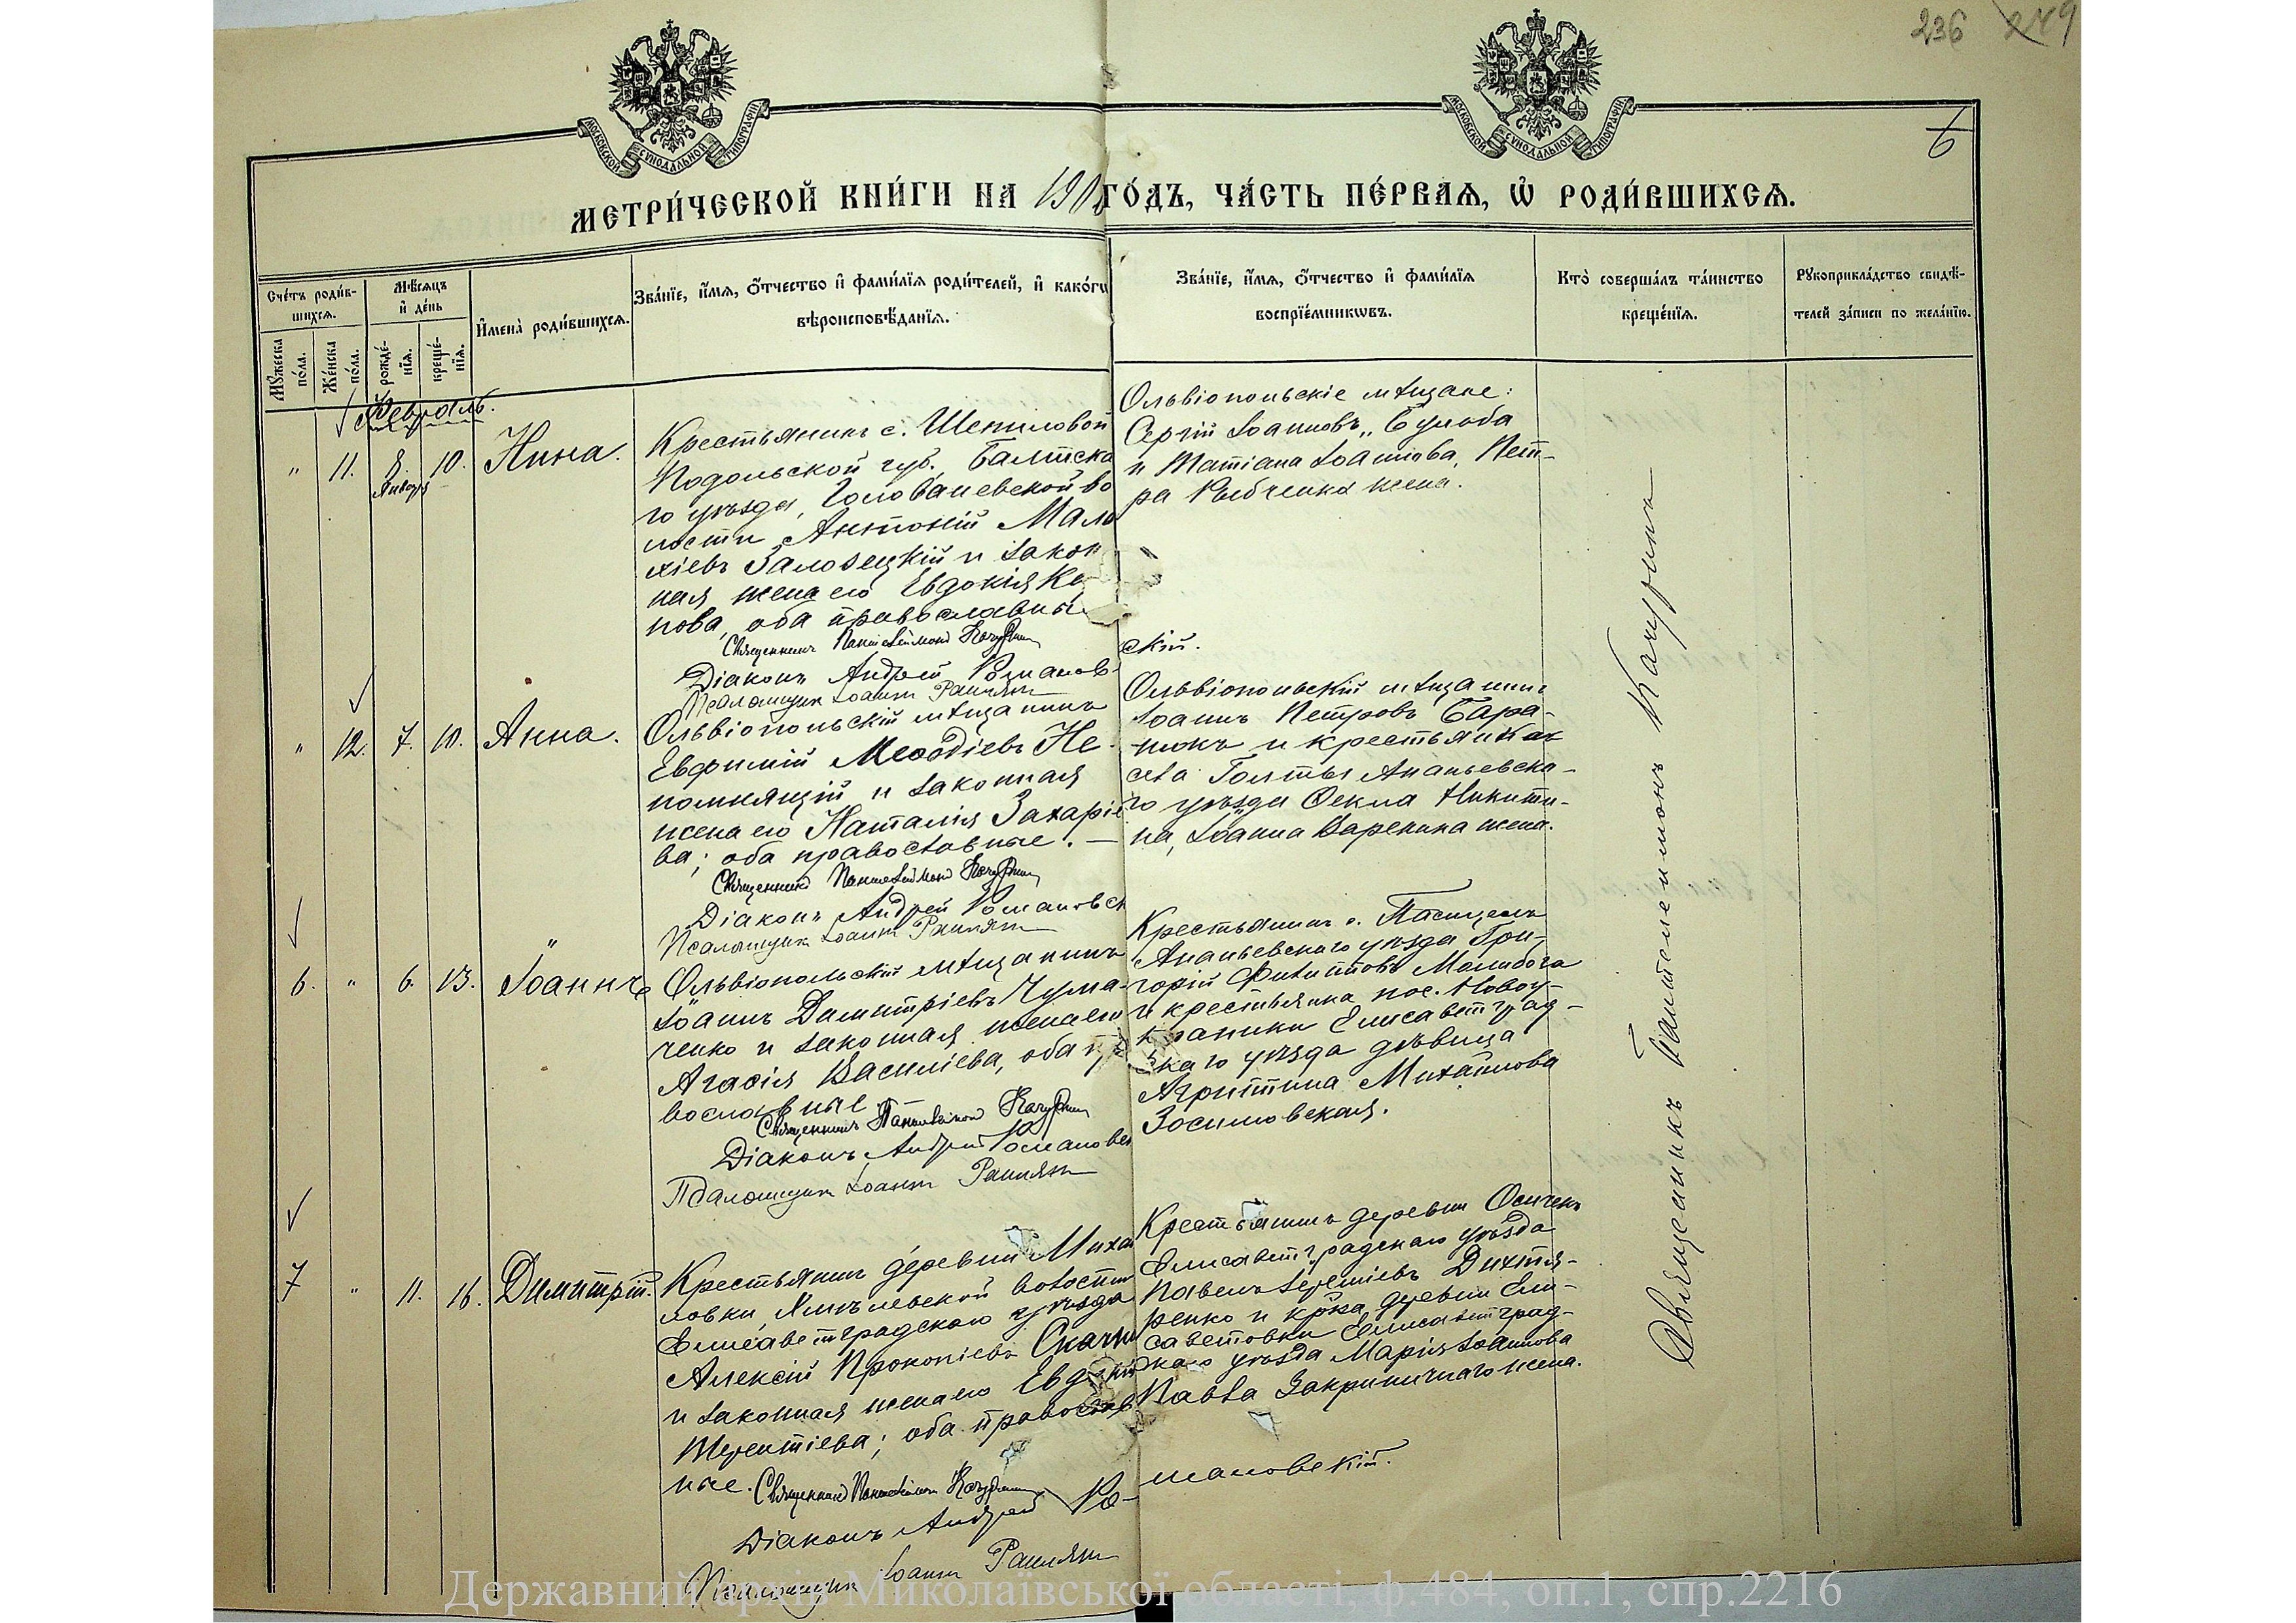 236 249
6
МОСКОВСКОЙ СУНОДАЛЬНОЙ ТИПОГРАФІИ
МОСКОВСКОЙ СУНОДАЛЬНОЙ ТИПОГРАФІИ
МЕТРИ́ЧЕСКОЙ КНИ́ГИ НА 190 ГО́ДЪ, ЧА́СТЬ ПЕ́РВАѦ, Ѡ҆ РОДИ́ВШИХСѦ.
Сче́тъ роди́в-
шихсѧ.
Мꙋ́жеска по́ла.
Же́нска по́ла.
Мѣ́сѧцъ и҆ де́нь
рожде́-
нїѧ.
креще́-
нїѧ.
И҆мена̀ роди́вшихсѧ.
Зва́нїе, и҆́мѧ, ѻ҆́тчество и҆ фами́лїѧ роди́телей, и҆ како́гѡ
вѣроисповѣ́данїѧ.
Зва́нїе, и҆́мѧ, ѻ҆́тчество и҆ фами́лїѧ
воспрїе́мникѡвъ.
Кто̀ соверша́лъ та́инство
креще́нїѧ.
Рꙋкоприкла́дство свидѣ́-
телей за́писи по жела́нїю.
Февраль.
" 11. 8. 10. Нина.
Января
Крестьянинъ с. Шепиловой
Подольской губ., Балтска
го уѣзда, Голованевской во
лости Антоній Мала
хіевъ Заловецкій и закон
ная жена его Евдокія
нова, оба православны
Священникъ Пантелеймонъ Качурин
Діаконъ Андрей Романов-
скій.
Псаломщик Іоанн
Ольвіопольскіе мѣщане:
Сергій Іоанновъ
и Татіана Іоаннова, Пет-
ра Рыбченка жена.
" 12. 7. 10. Анна.
Ольвіопольскій мѣщанинъ
Евфимій Меѳодіевъ Не-
помнящій и законная
жена его Наталія Захаріе
ва; оба православные. —
Священникъ Пантелеймонъ Качурин
Діаконъ Андрей Романовск
Псаломщик Іоанн
Ольвіопольскій мѣщанинъ
Іоаннъ Петровъ Бара-
нюкъ и крестьянка
села Голты Ананьевска-
го уѣзда Ѳекла Никити-
на, Іоанна Варенина жена.
6. " 6. 13. Іоаннъ
Ольвіопольскій мѣщанинъ
Іоаннъ Димитріевъ Чума-
ченко и законная жена его
Агаѳія Василіева, оба пра
вославные
Священникъ Пантелеймонъ Качурин
Діаконъ Андрей Романовск
Псаломщик Іоанн
Крестьянинъ с.
Ананьевскаго уѣзда Гри-
горій Филипповъ
и крестьянка пос. Новоу-
краинки Елисаветград-
скаго уѣзда дѣвица
Агриппина Михайлова
Зосимовская.
7 " 11. 16. Димитрій.
Крестьянинъ деревни Миха
ловки, волости
Елисаветградскаго уѣзда
Алексій Прокопіевъ
и законная жена его Евдокія
Терентіева; оба православ
ные. Священникъ Пантелеймонъ Качурин
Діаконъ Андрей Ро-
мановскій.
Псаломщик Іоанн
Крестьянинъ деревни
Елисаветградскаго уѣзда
Павелъ Дихтя-
ренко и кр-ка деревни Ели-
саветовки Елисаветград-
скаго уѣзда Марія Іоаннова
Павла Закриничнаго жена.
Священникъ Пантелеимонъ Качуринъ
Державний архів Миколаївської області, ф.484, оп.1, спр.2216